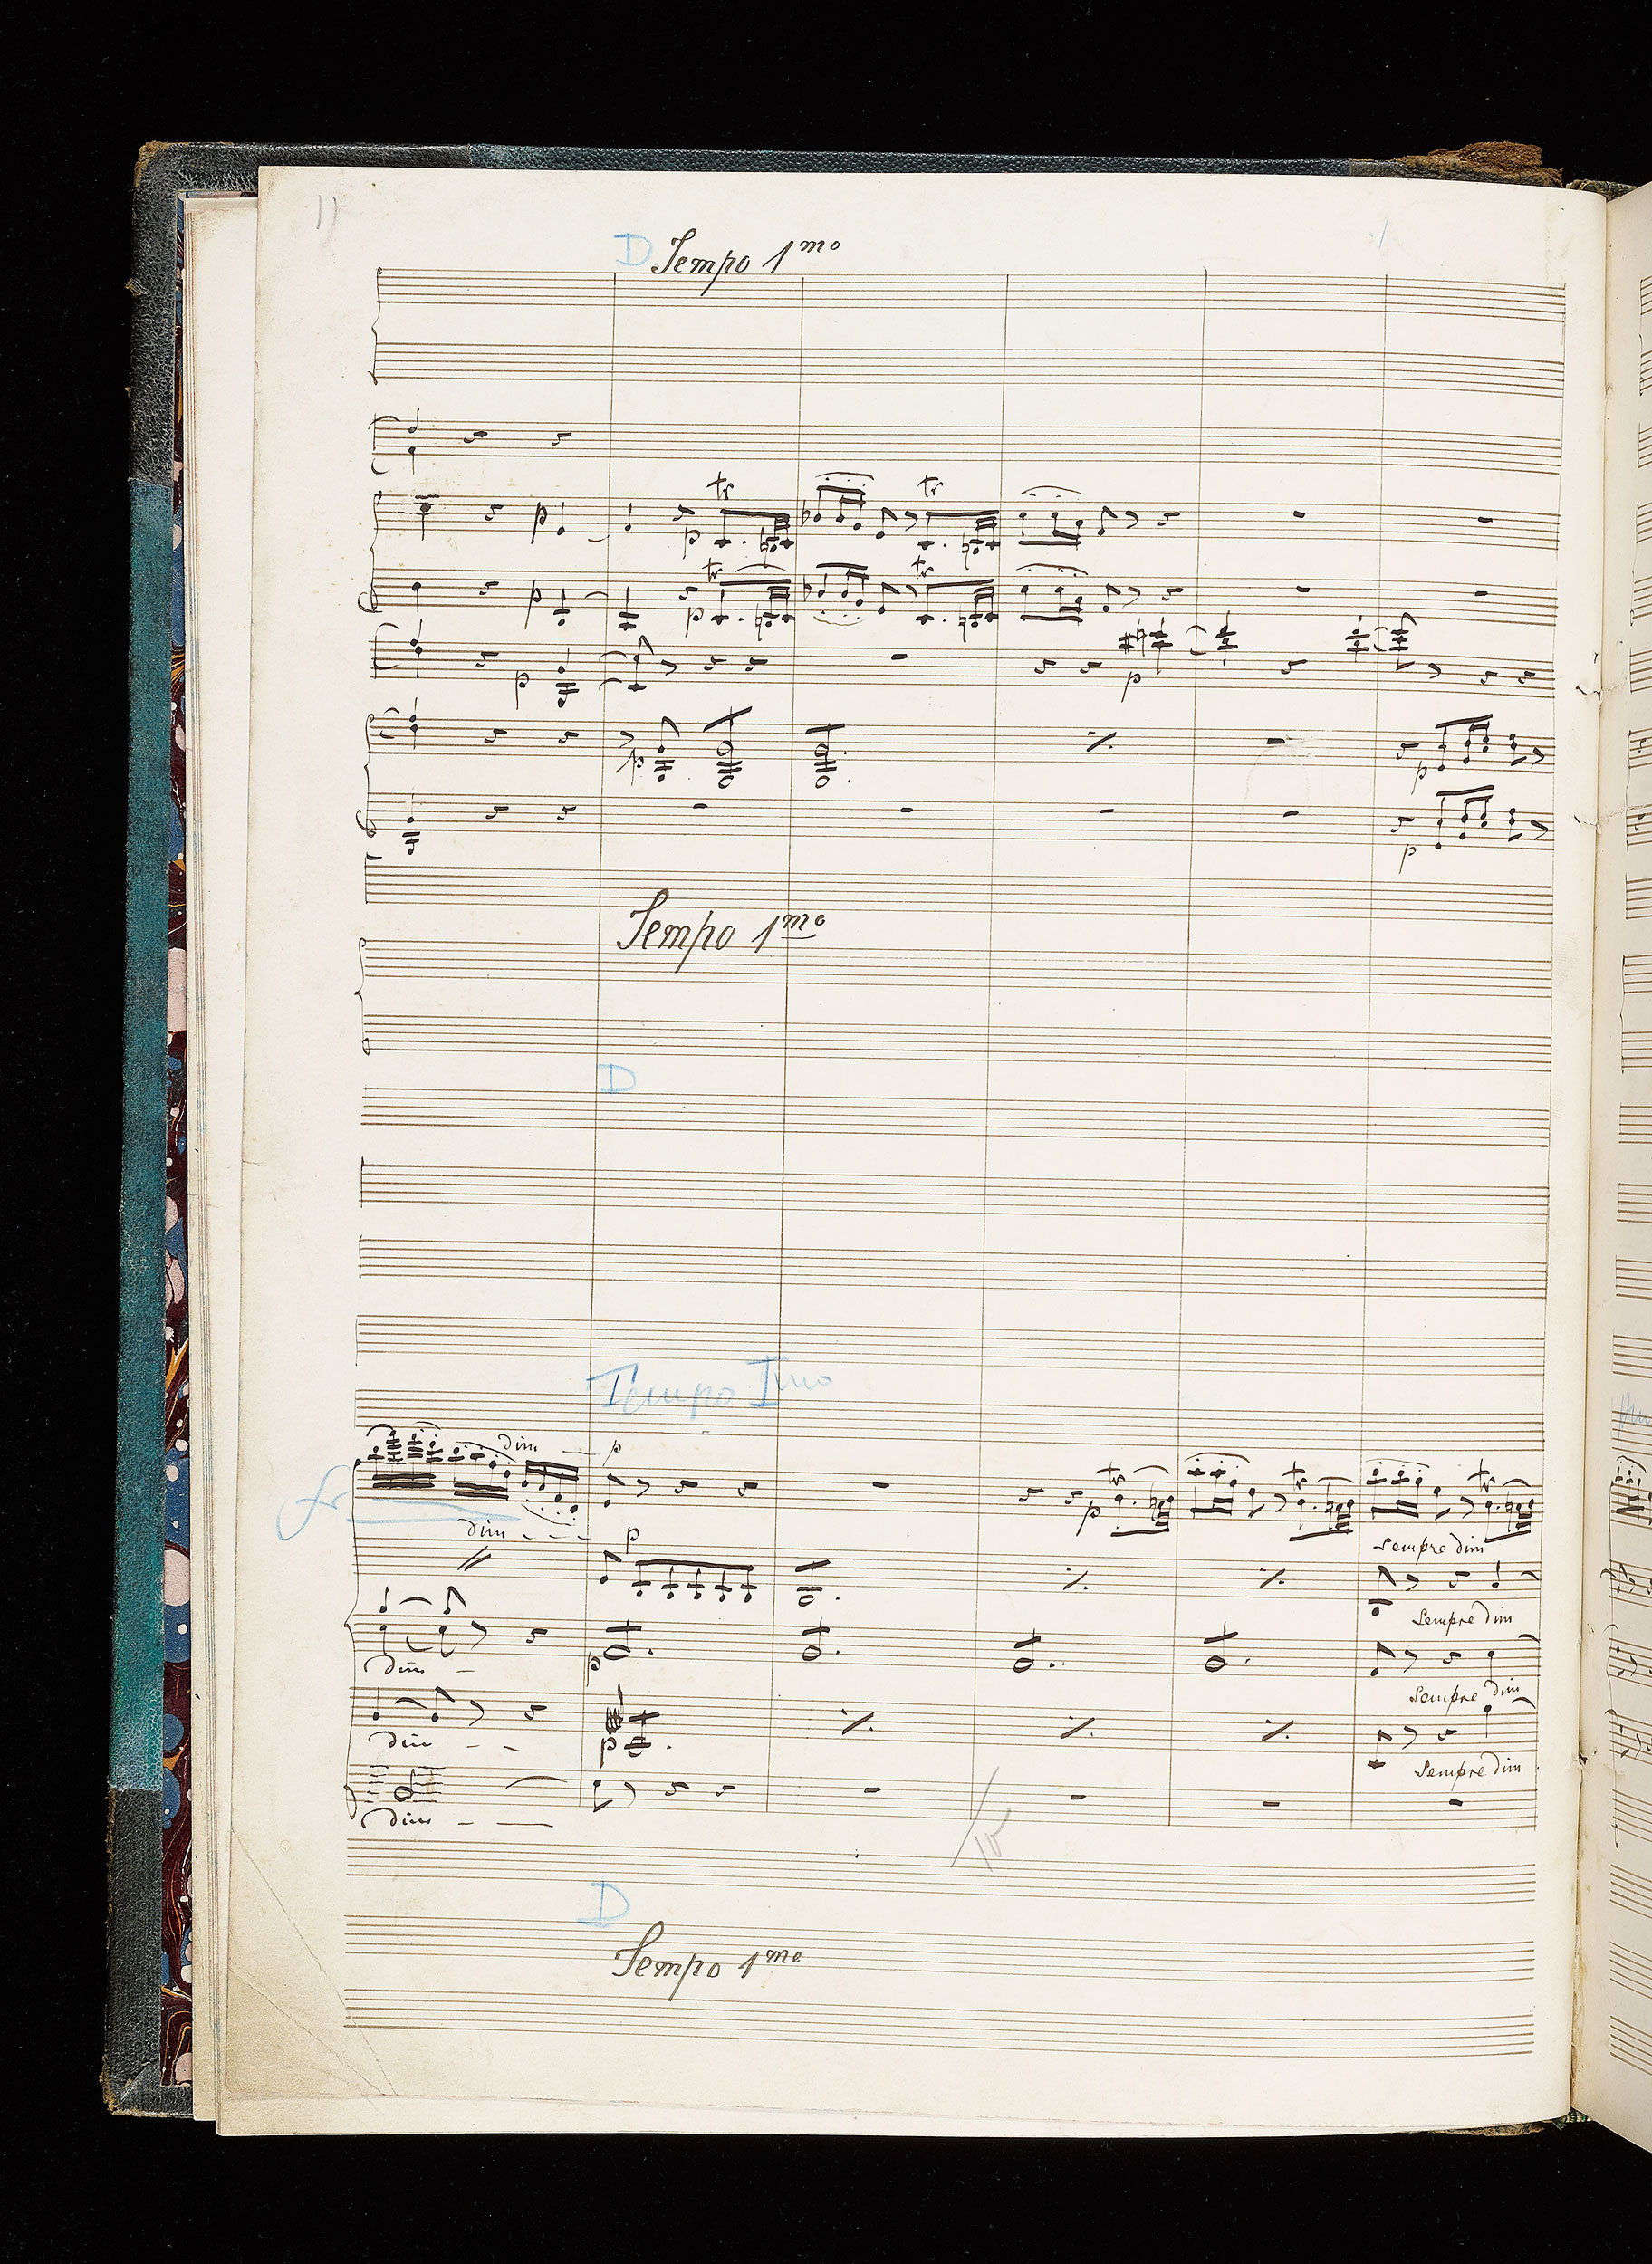 11
D Tempo 1mo
tr tr
p p
tr tr
p p
p p
p p
p
Tempo 1mo
D
Tempo Imo
dim p
tr tr tr
p
dim p
sempre dim
sempre dim
dim p
sempre dim
dim p
sempre dim
dim
D
Tempo 1mo